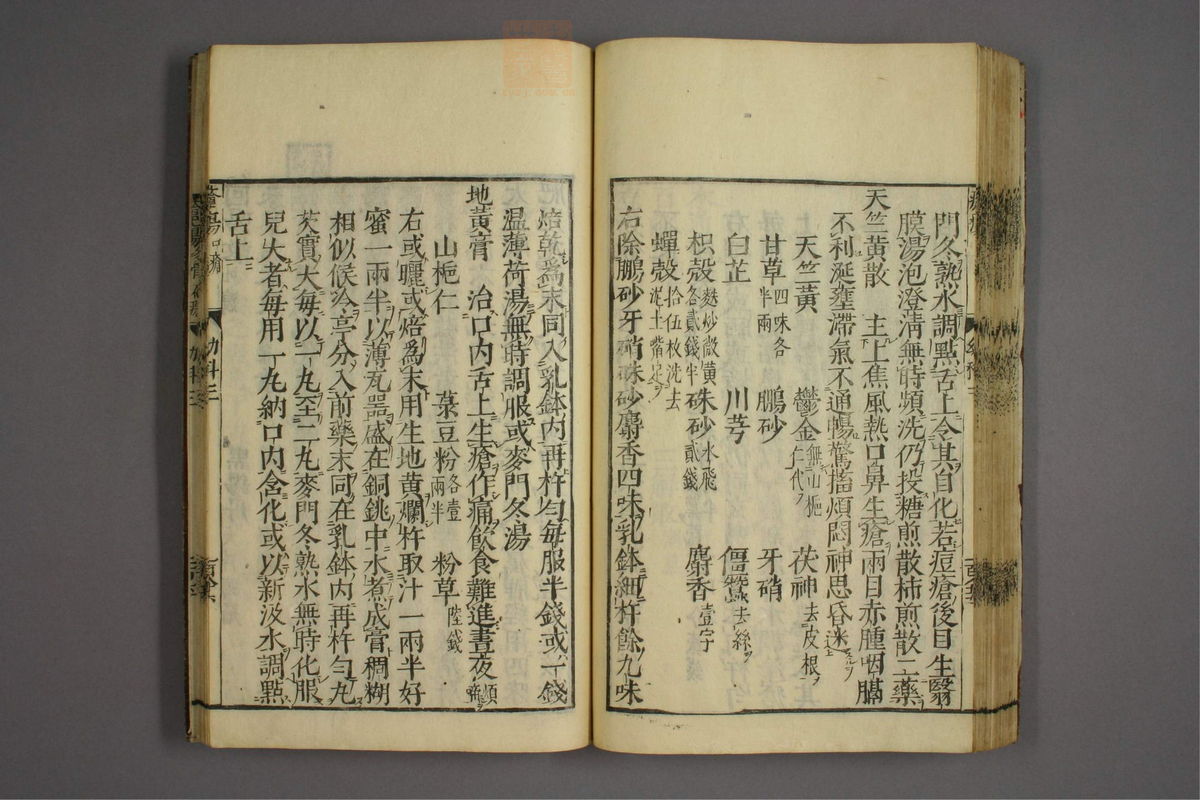 門冬熟水調點舌上令其自化若痘瘡後目生翳
膜湯泡澄淸無時頻洗仍投糖煎散柿煎散二藥
天竺黃散　主上焦風熱口鼻生瘡兩目赤腫咽膈
不利涎壅滯氣不通暢驚搐煩悶神思昏迷
天竺黃　鬱金無山梔仁代　茯神去皮根
甘草四味各半兩　鵬砂　牙硝
白芷　川芎　僵蠶去絲
枳殼麩炒微黃各貳錢半　硃砂水飛貳錢　麝香壹字
蟬殼拾伍枚洗去泥土嘴足
右除鵬砂牙硝硃砂麝香四味乳鉢細杵餘九味
焙乾爲末同入乳鉢內再杵勻每服半錢或一錢
温薄荷湯無時調服或麥門冬湯
地黃膏　治口內舌上生瘡作痛飲食難進晝夜煩
山梔仁　菉豆粉各壹兩半　粉草陸錢
右或曬或焙爲末用生地黃爛杵取汁一兩半好
蜜一兩半以薄瓦器盛在銅銚中水煮成膏稠糊
相似候冷亭分入前藥末同在乳鉢內再杵勻丸
芡實大每以一丸至二丸麥門冬熟水無時化服
兒大者每用一丸納口內含化或以新汲水調點
舌上
幼科三